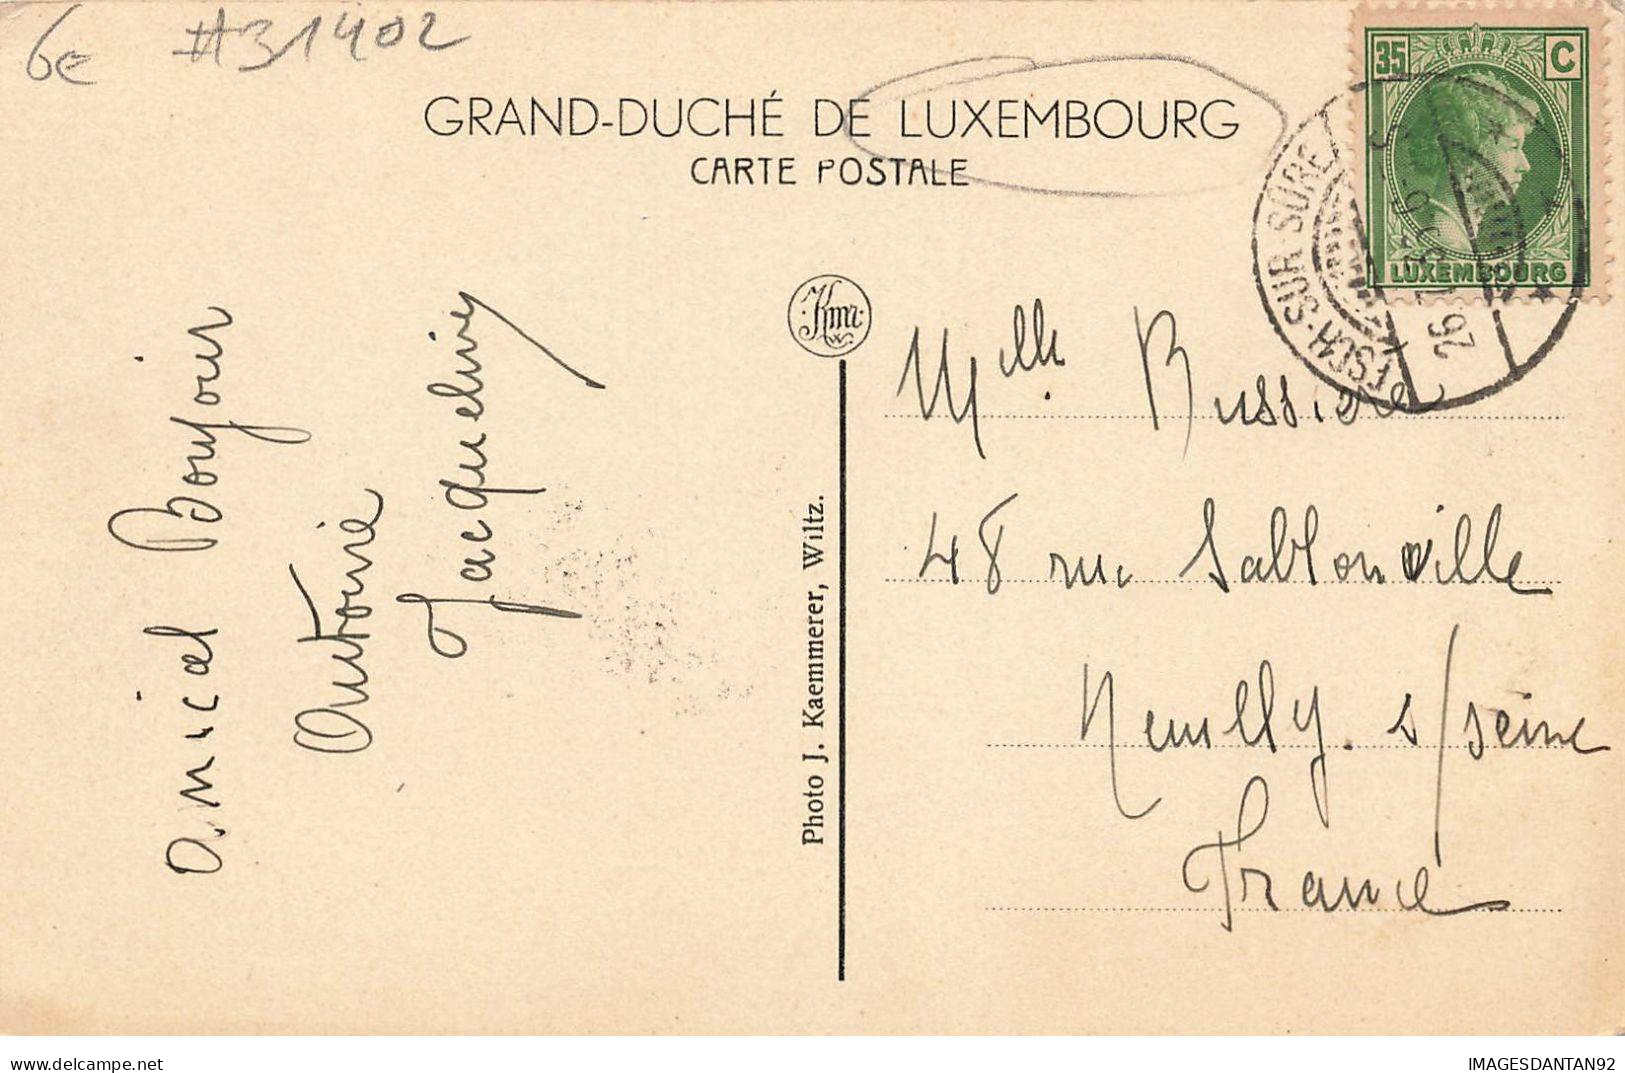 6e #31402
GRAND-DUCHÉ DE LUXEMBOURG
CARTE POSTALE
35 C
LUXEMBOURG
ESCH-SUR-SÛRE
amical Bonjour
Antoine
Jacqueline
Kma
Photo J. Kaemmerer, Wiltz.
Mlle. Bussière
48 rue Sablonville
Neuilly s/seine
France
IMAGESDANTAN92